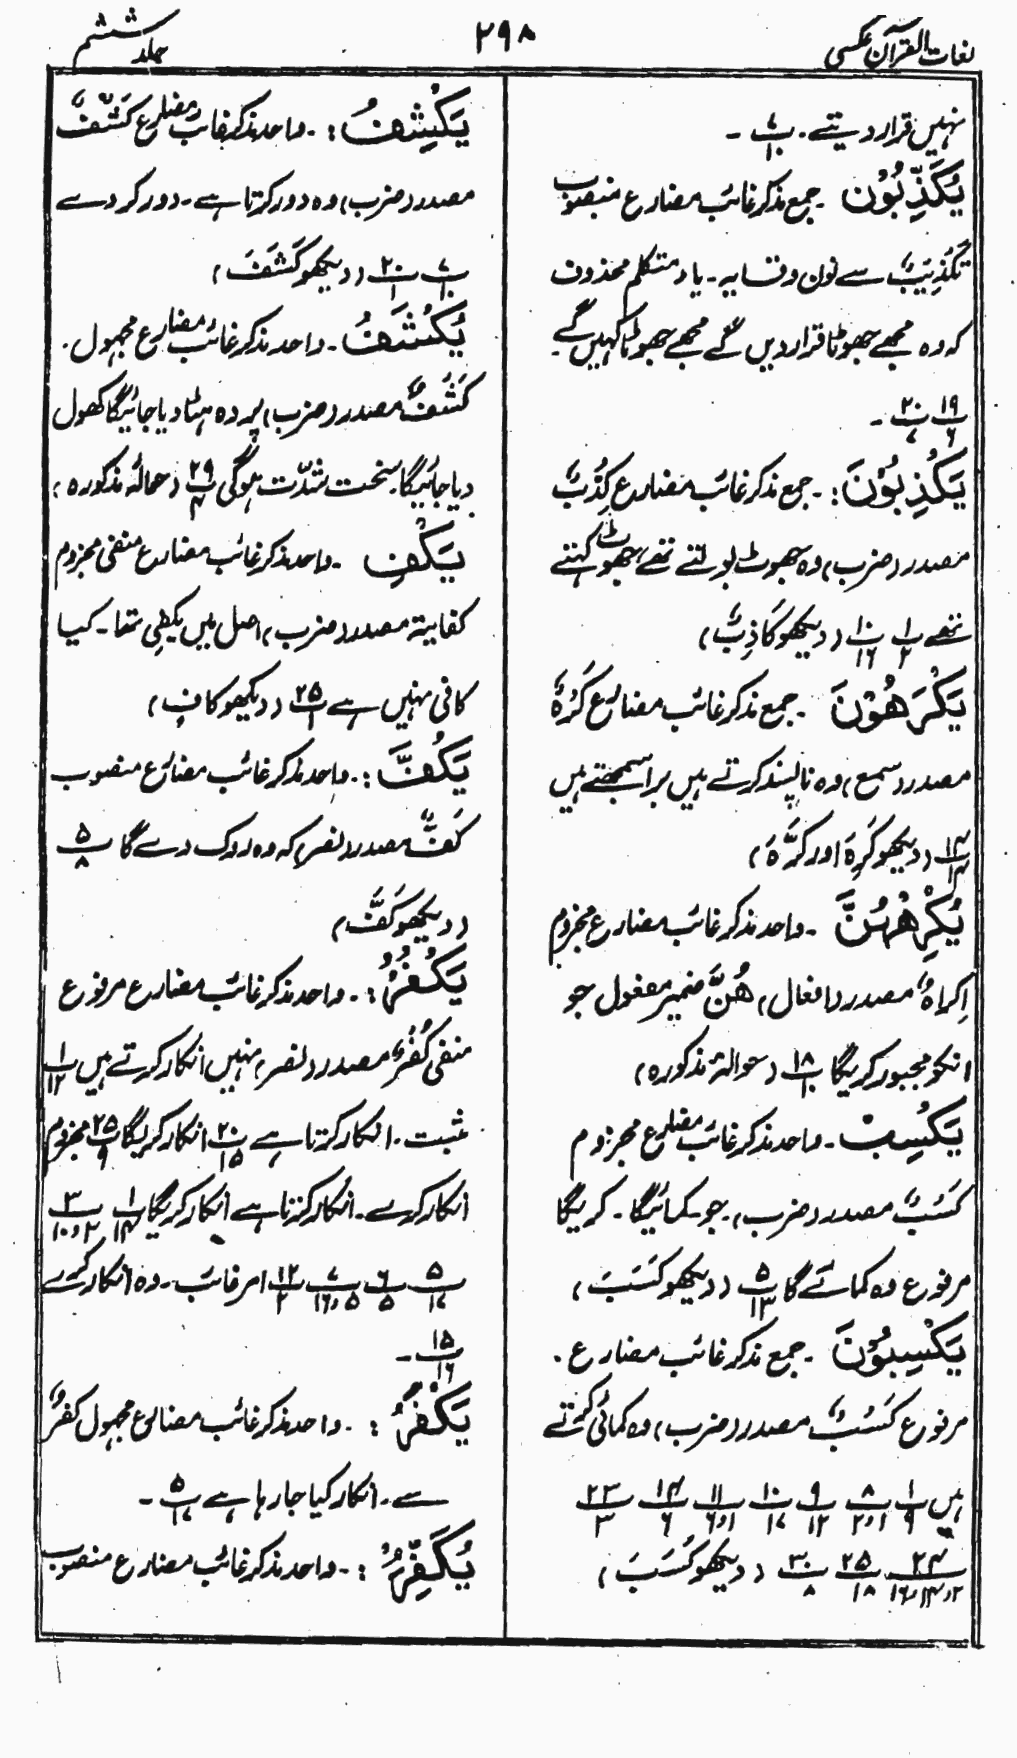 لغات القرآن عکسی
۲۹۸
جلد ششم
نہیں قرار دیتے۔ پ ۷/۱۰ ۔
یُکَذِّبُوْنِ ۔ جمع مذکر غائب مضارع منصوب
تَکْذِیْبٌ سے نون وقایہ۔ یاء متکلم محذوف
کہ وہ مجھے جھوٹا قرار دیں گے مجھے جھوٹا کہیں گے۔
۱۹/۶ ۲۰/۷ ۔
یَکْذِبُوْنَ :۔ جمع مذکر غائب مضارع کِذْبٌ
مصدر (ضرب) وہ جھوٹ بولتے تھے، جھوٹ کہتے
تھے ۱/۲ ۱۰/۱۶ (دیکھو کَاذِبٌ)
یَکْرَھُوْنَ ۔ جمع مذکر غائب مضارع کُرْہٌ
مصدر (سمع) وہ ناپسند کرتے ہیں برا سمجھتے ہیں
۱۴/۱۳ (دیکھو کَرِہَ اور کَرَّہَ)
یُکْرِھْھُنَّ ۔ واحد مذکر غائب مضارع مجزوم
اِکراہٌ مصدر (افعال) ھُنَّ ضمیر مفعول جو
انکو مجبور کریگا ۱۸/۱۰ (حوالۂ مذکورہ)
یَکْسِبْ ۔ واحد مذکر غائب مضارع مجزوم
کَسْبٌ مصدر (ضرب) جو کمائیگا۔ کریگا
مرفوع وہ کمائے گا ۵/۱۳ (دیکھو کَسَبَ)
یَکْسِبُوْنَ ۔ جمع مذکر غائب مضارع۔
مرفوع کَسْبٌ مصدر (ضرب) وہ کمائی کرتے
ہیں ۱/۹ ۸/۱و۲ ۹/۱۲ ۱۰/۱۷ ۱۱/۱و۶ ۱۴/۶ ۲۳/۳
۲۴/۲و۱۴و۱۶ ۲۵/۱۸ ۳۰/۸ (دیکھو کَسَبَ)
یَکْشِفُ :۔ واحد مذکر غائب مضارع کَشْفٌ
مصدر (ضرب) وہ دور کرتا ہے۔ دور کردے
۷/۱۰ ۲۰/۱ (دیکھو کَشَفَ)
یُکْشَفُ ۔ واحد مذکر غائب مضارع مجہول۔
کَشْفٌ مصدر (ضرب) پردہ ہٹا دیا جائیگا کھول
دیا جائیگا۔ سخت شدّت ہوگی ۲۹/۴ (حوالہ مذکورہ)
یَکْفِ ۔ واحد مذکر غائب مضارع منفی مجزوم
کفایۃ مصدر (ضرب) اصل میں یکفی تھا۔ کیا
کافی نہیں ہے ۲۵/۱ (دیکھو کافٍ)
یَکُفَّ :۔ واحد مذکر غائب مضارع منصوب
کَفٌّ مصدر (نصر) کہ وہ روک دے گا ۵/۸
(دیکھو کَفَّ)
یَکْفُرُ :۔ واحد مذکر غائب مضارع مرفوع
منفی کُفْرٌ مصدر (نصر) نہیں انکار کرتے ہیں ۱/۱۲
مثبت۔ انکار کرتا ہے ۲۰/۱۵ انکار کریگا ۲۵/۹ مجزوم
انکار کرے۔ انکار کرتا ہے انکار کریگا ۱/۱۴ ۳/۲و۱۰
۵/۱۷ ۶/۵ ۷/۵و۱۶ ۱۲/۲ امر غائب۔ وہ انکار کرے
۱۵/۱۶ ۔
یُکْفَرُ :۔ واحد مذکر غائب مضارع مجہول کفرٌ
سے۔ انکار کیا جا رہا ہے ۵/۱۷ ۔
یُکَفِّرُ :۔ واحد مذکر غائب مضارع منصوب